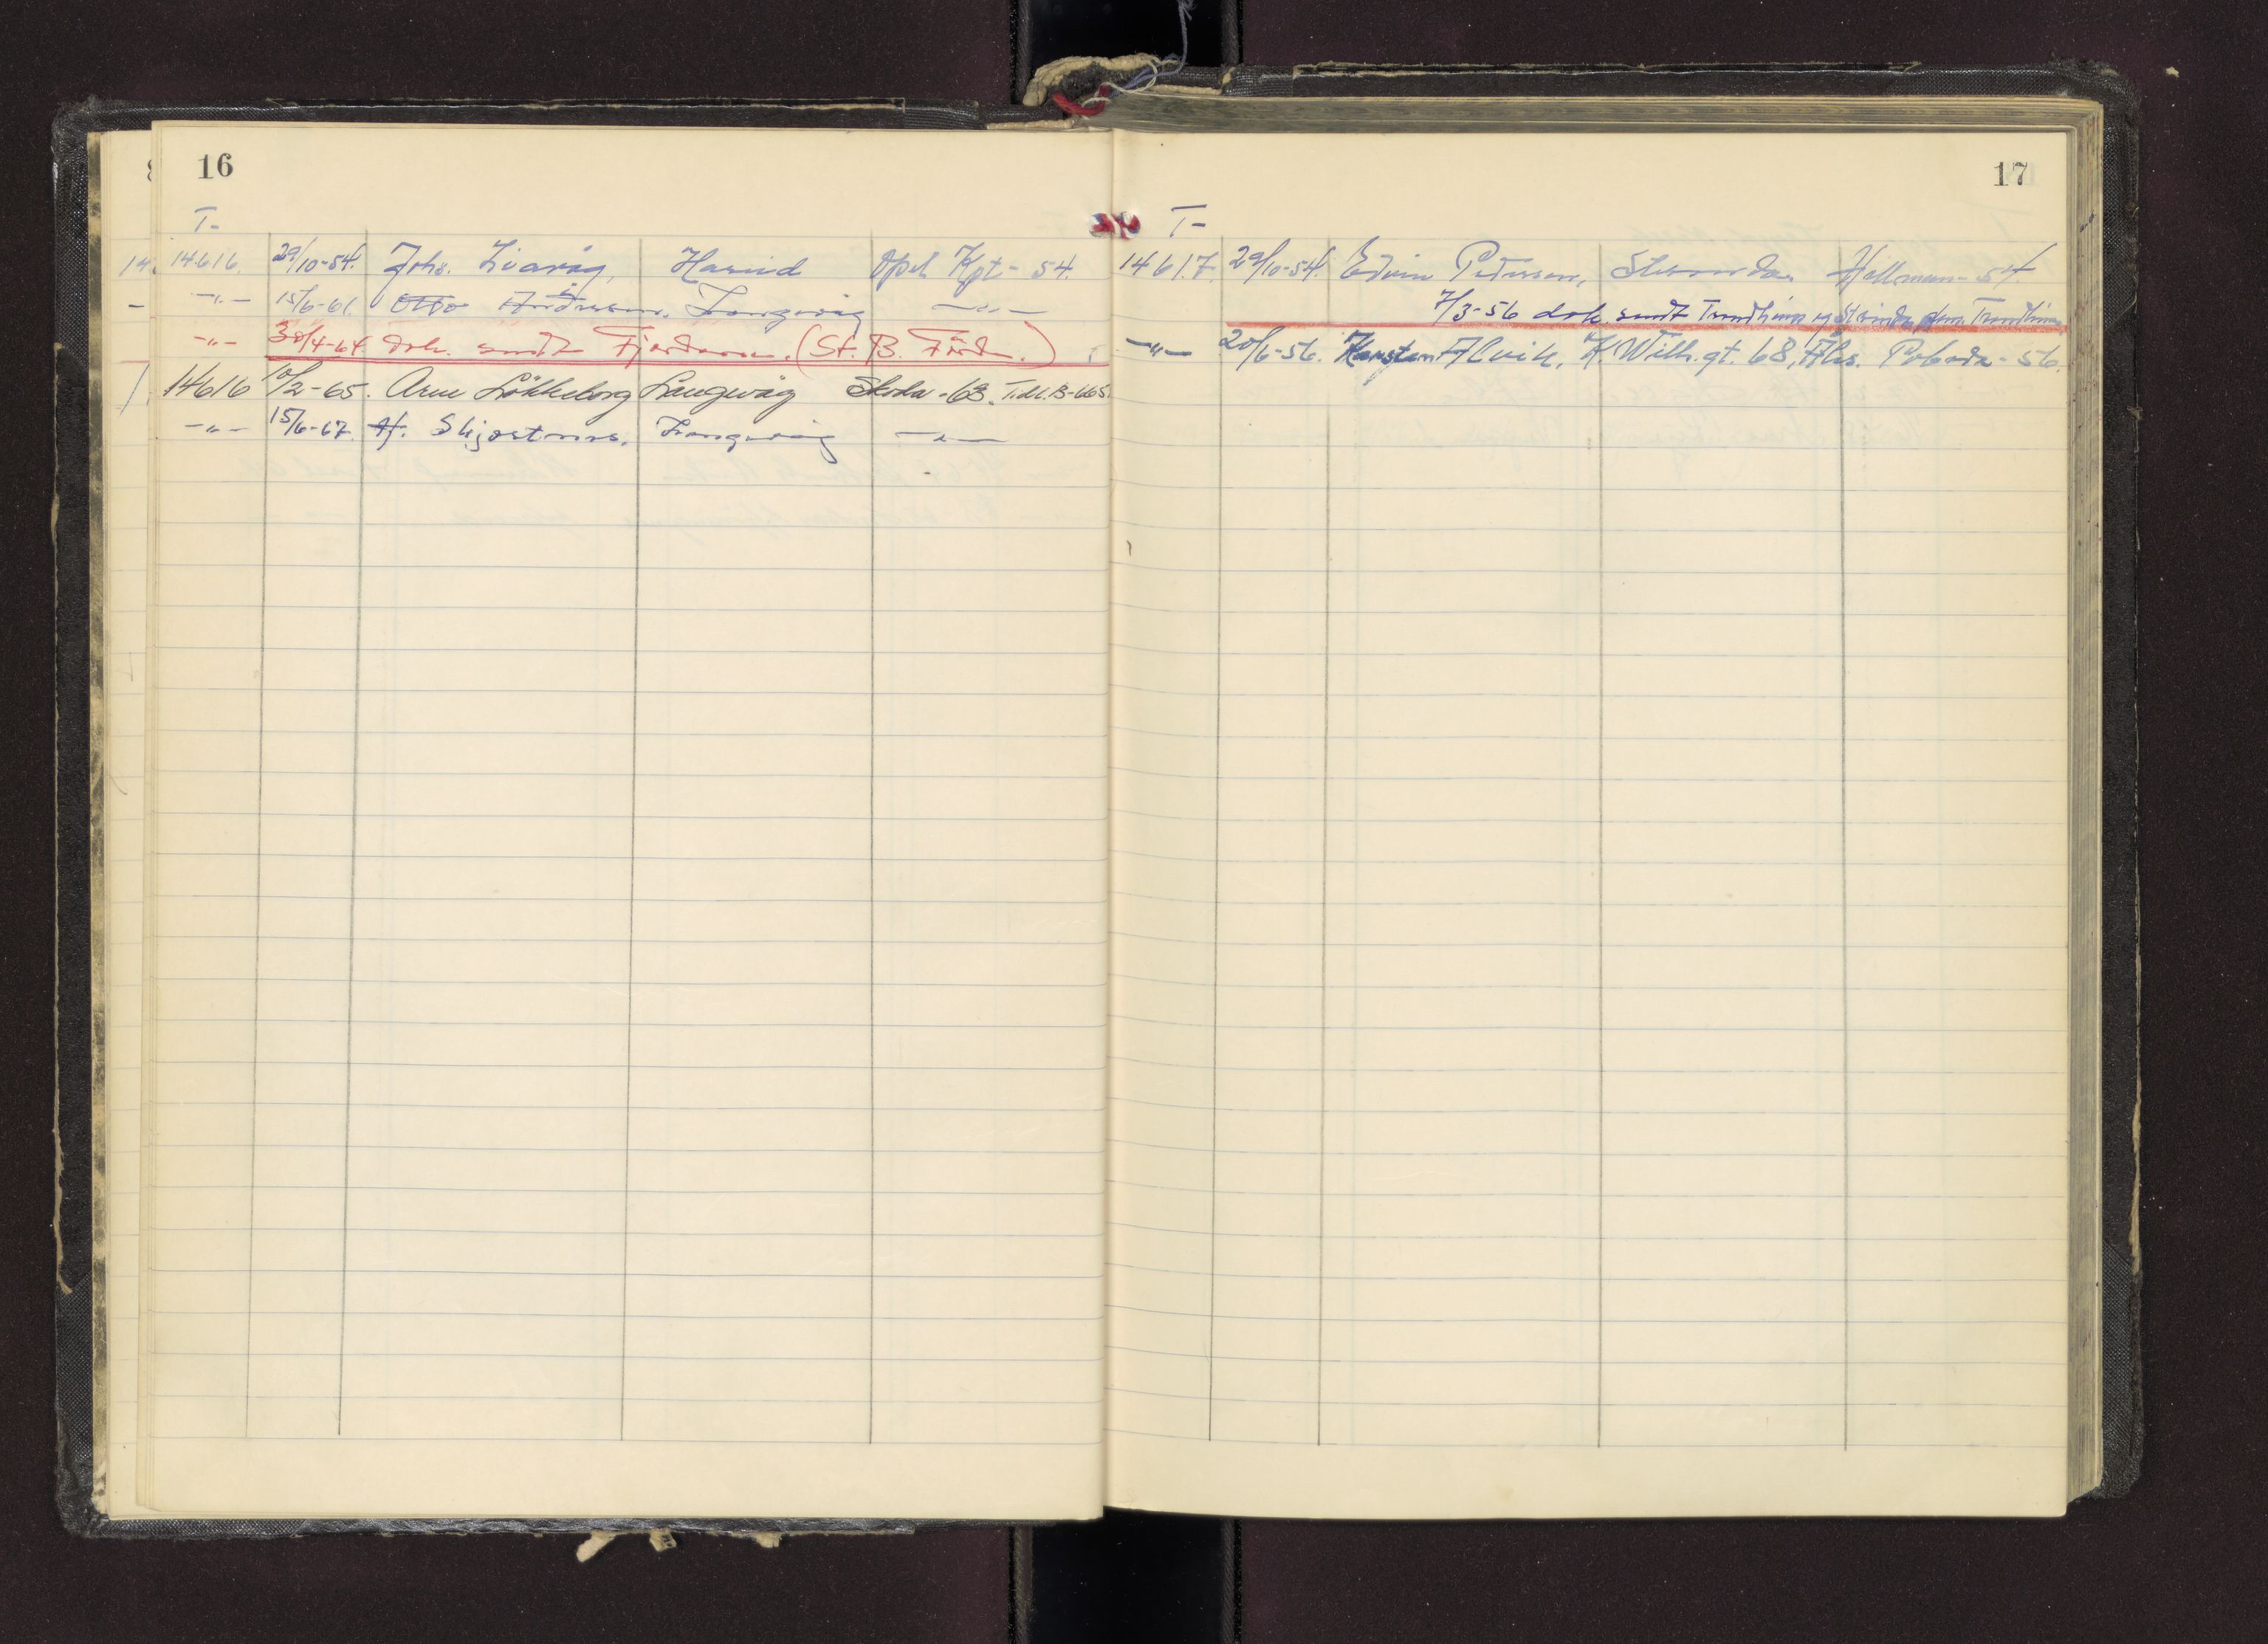 16
T-
14616. 29/10-54. Johs. Liavåg, Hareid Opel Kpt-54.
-"- 15/6-61. Otto Andersen. Langevåg -"-
-"- 30/4-64 dok. sendt Fjordane. (St. B. Förde.)
14616 10/2-65. Arne Lökkeborg Langevåg Skoda-63. Tidl. B-665
-"- 15/6-67. H. Skjostrøs. Langevåg -"-
17
T-
14617. 29/10-54. Edvin Pedersen, Hillman-54
7/3-56 dok. sendt Trondheim og Strinda, Trondheim
-"- 20/6-56. Karsten Alvik, K. Wilh. gt. 68, Åls. Pobeda-56.